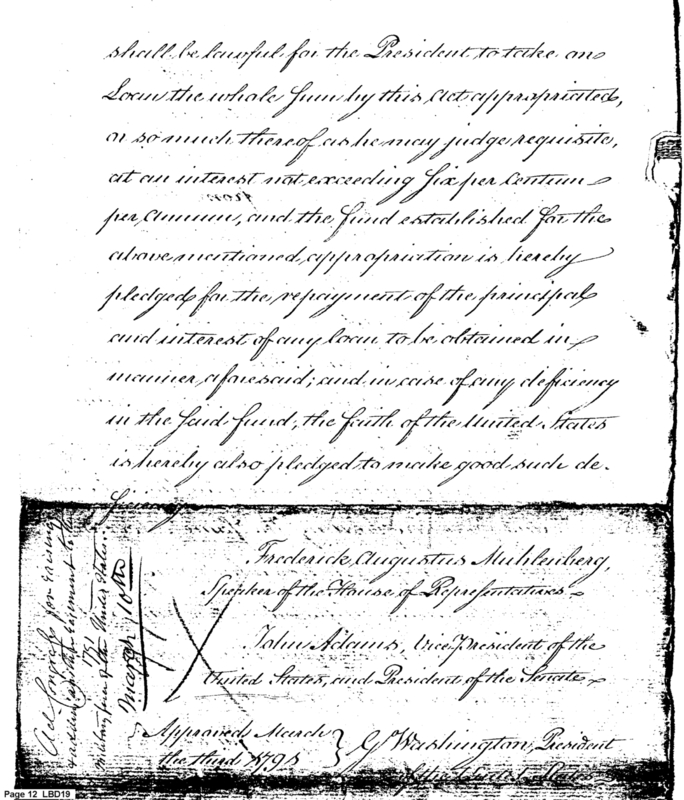 shall be lawful for the President to take on
Loan the whole sum by this act appropriated,
or so much thereof as he may judge requisite,
at an interest not exceeding six per Centum
per, annum, and the fund established for the
above mentioned, appropriation is, hereby
pledged for the repayment of the principal
and interest of any loan to be obtained in
manner, aforesaid; and in case of any deficiency
in the said fund, the faith of the United States
is hereby also pledged to make good such de-
ficiency.
Frederick Augustus Muhlenberg,
Speaker of the House of Representatives
John Adams, Vice President of the
United States, and President of the Senate
Approved, March
the third 1791
G Washington, President
of the United States
Act of Congress for raising
& adding another regiment to the
military force of the United States.
1791
March 10th
Page 12 LBD19